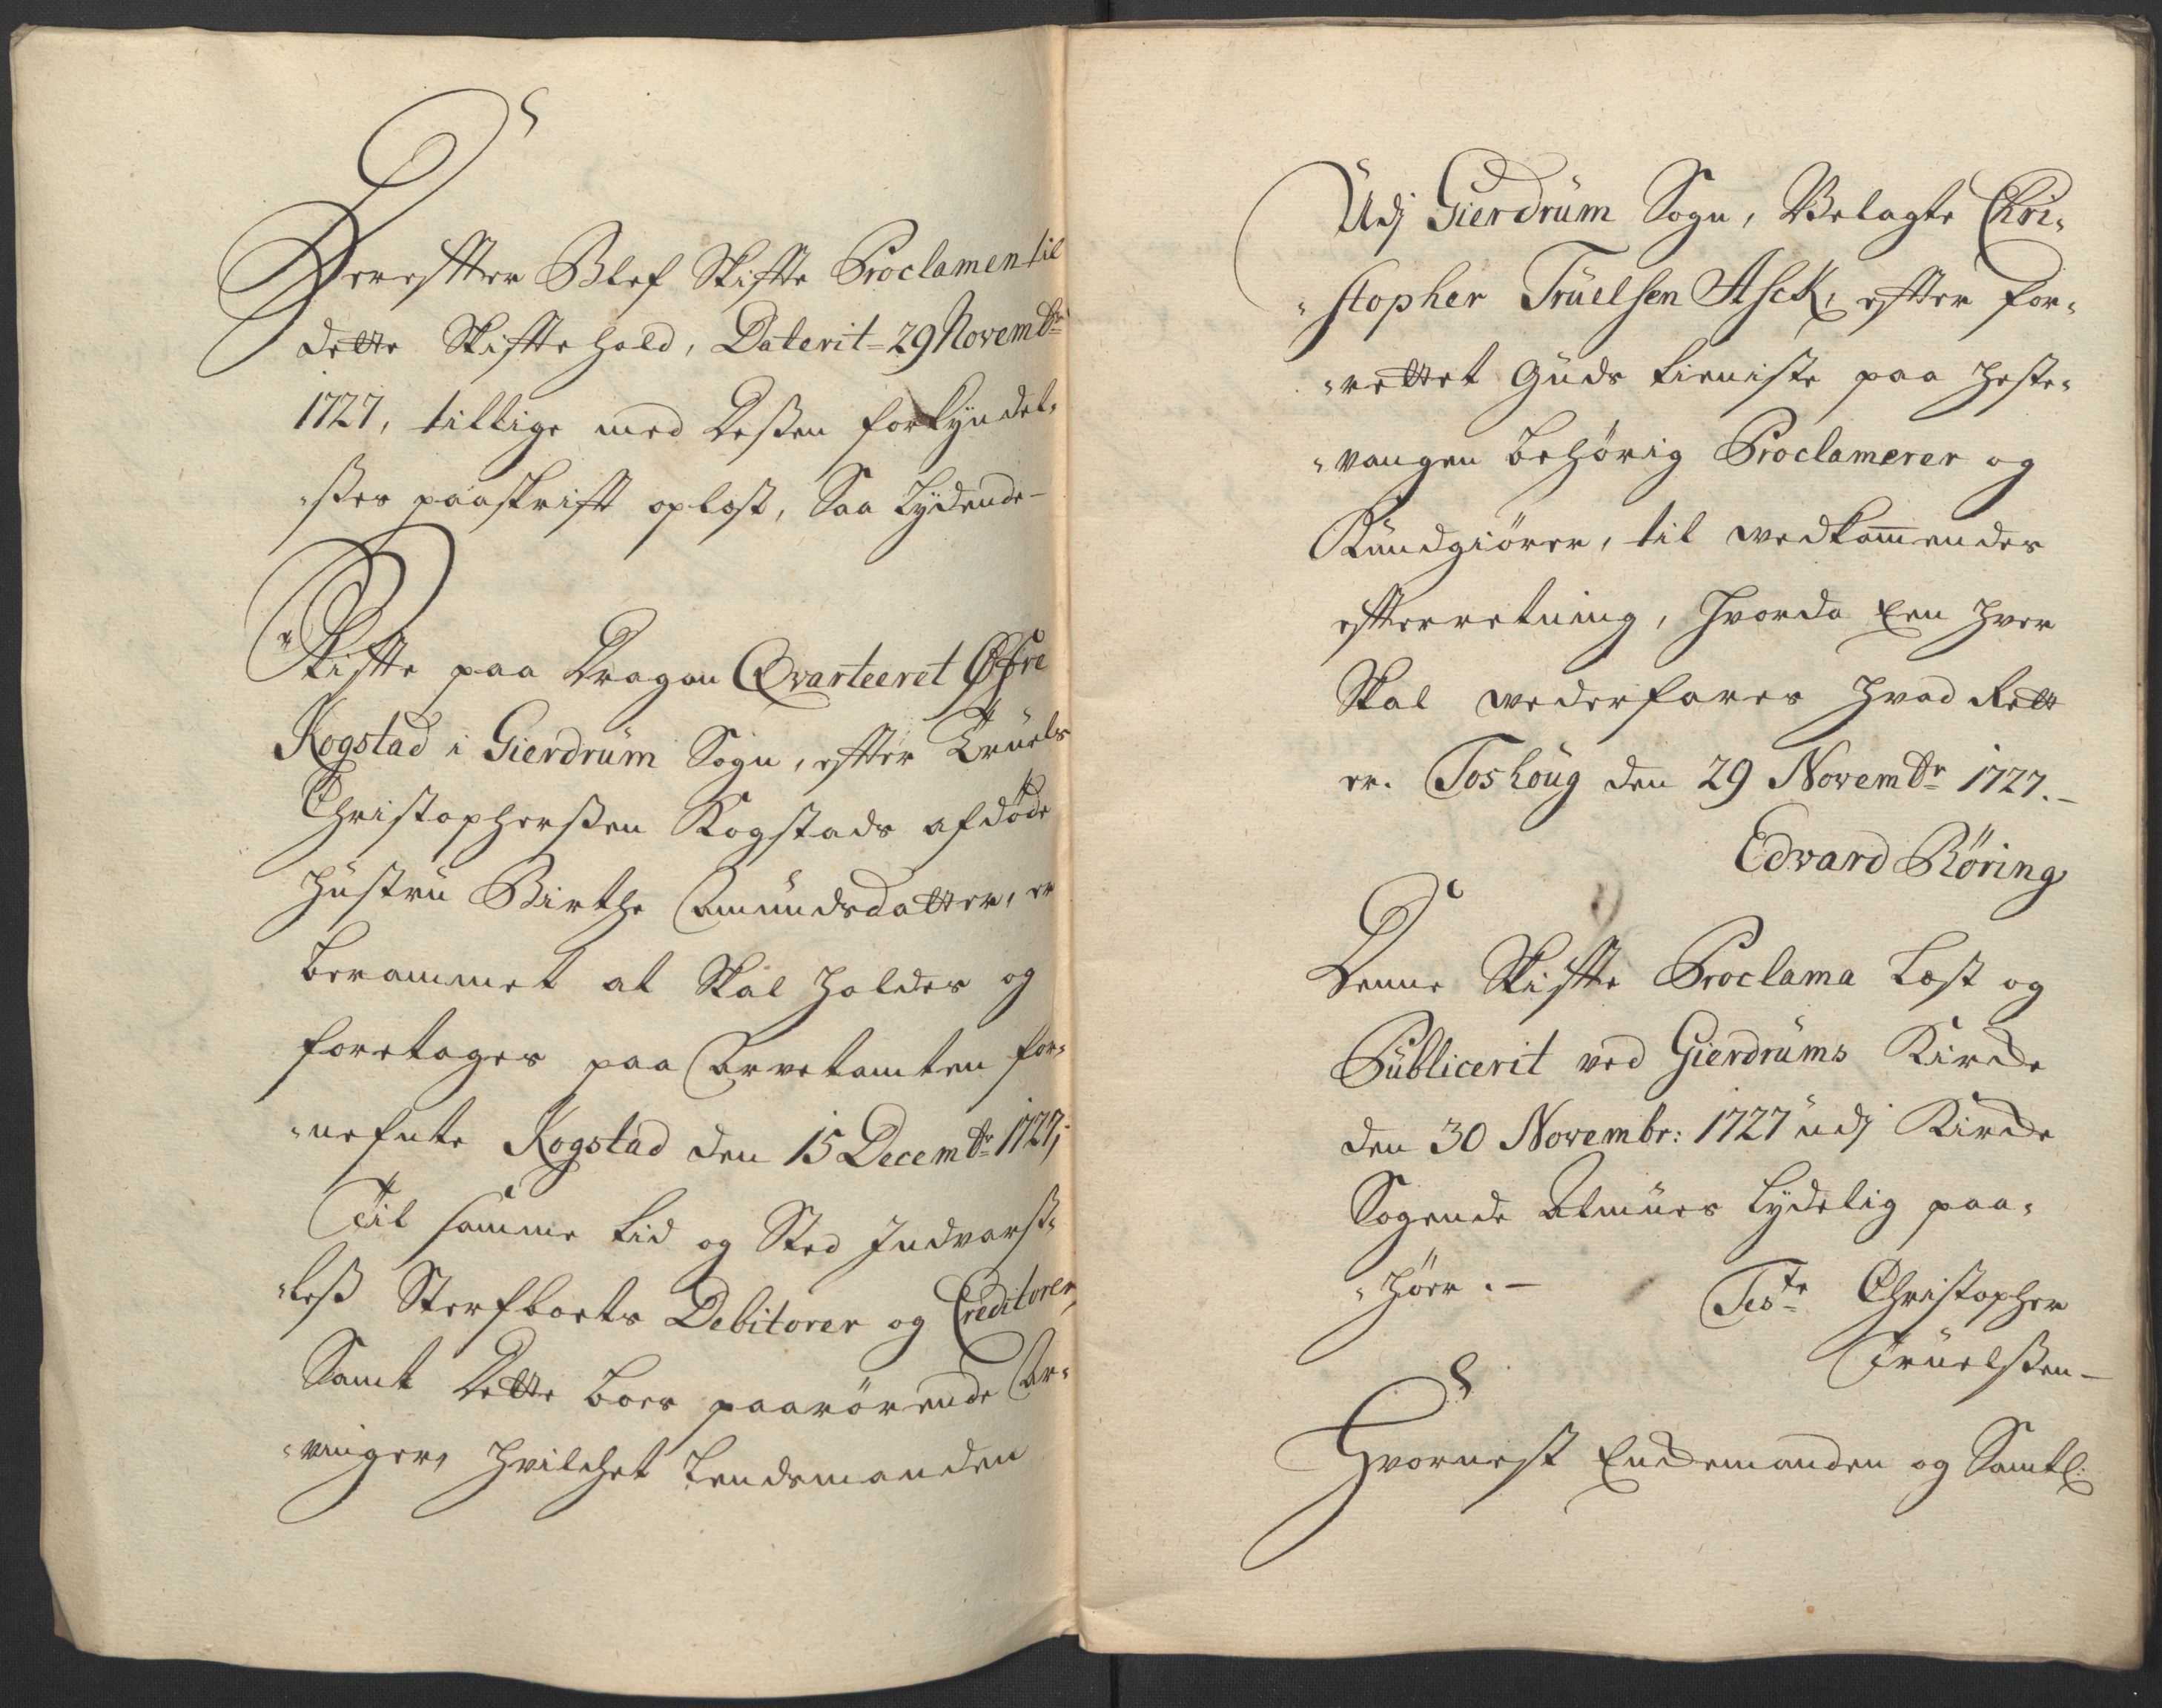 Derefter Blef Skifte Proclamen til
dette Skifte hold, Daterit 29 Novembr
1727, tillige med dessen forkyndel-
"ses paaskrift oplæst, Saa Lydende-
Skifte paa Dragon Qvarteeret Øfre
Kogstad i Gierdrüm Sogn, efter Trüels
Christophersen Kogstads afdøde
hüstrü Birthe Amündsdatter, er
berammet at Skal holdes og
foretages paa Arvetomten for-
"nefnte Kogstad den 15 Decembr 1727,
Til samme tid og Sted Indvarß-
"leß Sterfboets Debitorer og Creditorer,
Samt dette boes paarörende Ar-
"vinger, hvilchet Lendsmanden
Üdj Gierdrüm Sogn, Velagte Chri-
"stopher Trüelsen Asck, efter for-
"rettet Güds tieniste paa Heste-
"vangen behörig Proclamerer og
Kündgiörer, til vedkommendes
efterretning, hvorda Een hver
Skal vederfares hvad Rett
er. Toshoüg den 29 Novembr 1727.-
Edvard Röring
Denne Skifte Proclama Læst og
Püblicerit ved Gierdrüms Kircke
den 30 Novembr: 1727 üdj Kircke
Sogende Almües Lydelig paa-
"hörr.-
Teste Christopher
Trüelßen-
Hvornest Enckemanden og Samtl: